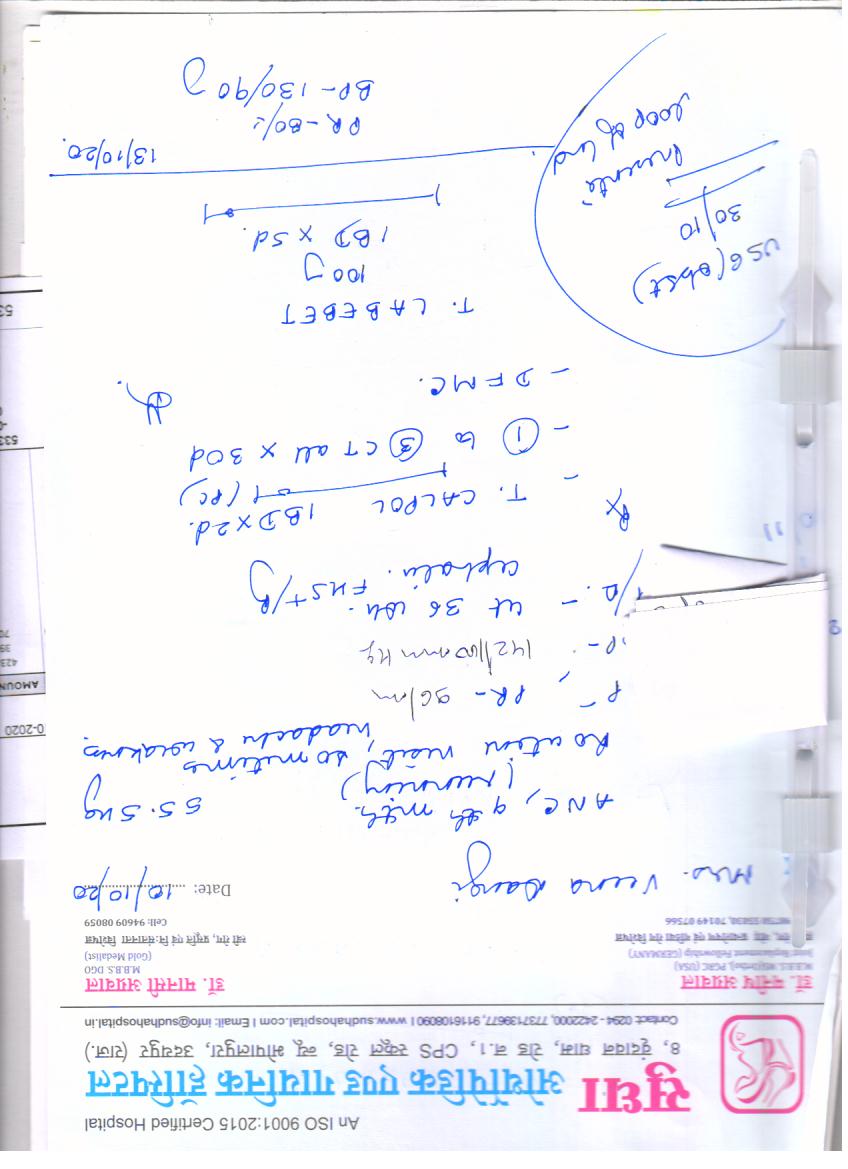 An ISO 9001:2015 Certified Hospital
सुधा ऑर्थोपेडिक एण्ड गायनिक हॉस्पिटल
8, वृंदावन धाम, रोड न.1, CPS स्कूल रोड, न्यू भोपालपुरा, उदयपुर (राज.)
Contact: 0294 - 2422000, 7737139677, 9116108090 I www.sudhahospital.com I Email: info@sudhahospital.in
डॉ. मनीष अग्रवाल
M.B.B.S. MS(Ortho), PGRC (USA)
Joint Replacement Fellowship (GERMANY)
70149 07566
डॉ. मानसी अग्रवाल
M.B.B.S. DGO
(Gold Medalist)
स्त्री रोग, प्रसूति एवं नि:संतानता विशेषज्ञ
Cell: 94609 08059
Date: 10/10/20
Mrs. Veena Dangi
ANC, 9th mth.
55.5 kg
Routine visit, sometimes
headache & weakness
(morning)
PR - 96/m
142/100 mm Hg
P/A. - ut 36 wk.
cephalic. FHS+/R
Rx
- T. CALPOL 1 BD x 2d.
(PC)
- 1 to 3 CT all x 30d
- DFMC.
T. LABEBET
100
1 BD x 5d.
USG (obst)
30/10
loop of cord
13/10/20.
PR - 80/
BP - 130/90
0-2020
AMOUN
423
39
70
533
53